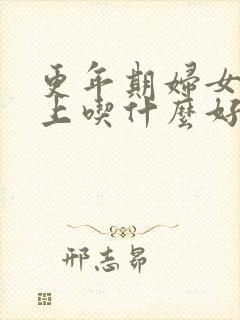 更年期婦女
上喫什麼好
邢志昂